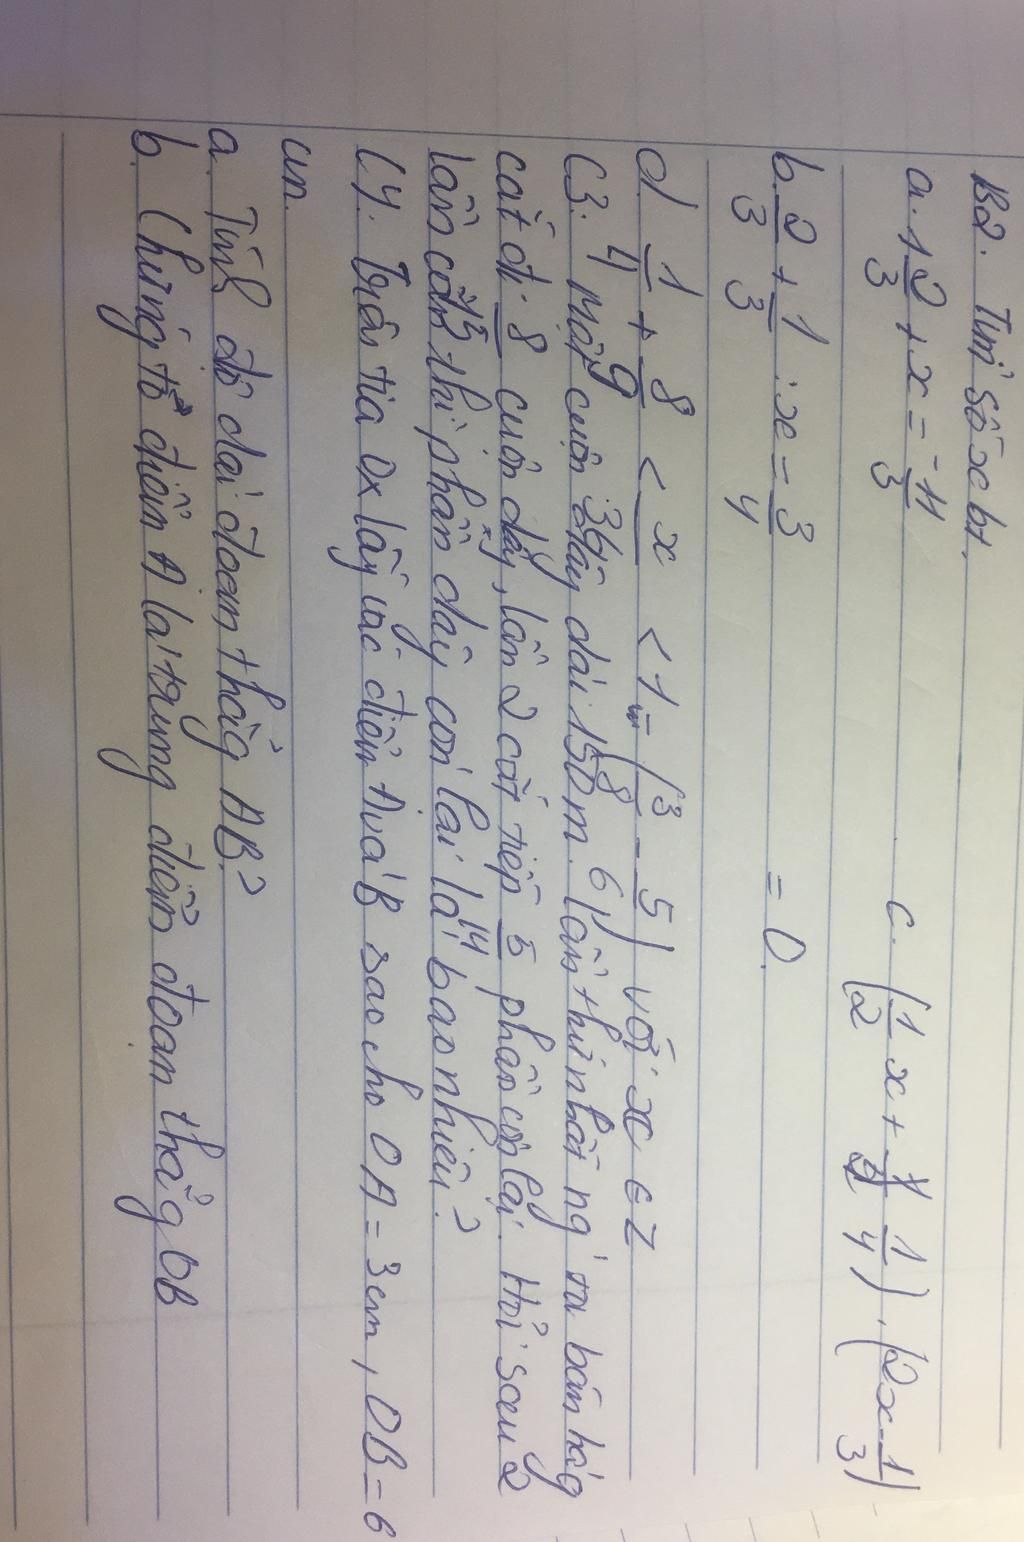 B2. Tìm số x bt,
a. 1 2/3 + x = -11/3
c. (1/2 x + 1/4) . (2x - 1/3)
b. 2/3 + 1/3 : x = 3/4
= 0.
d) 1/4 + 8/9 < x/36 < 1 - (3/8 - 5/6) với x ∈ Z
C3. Một cuộn dây dài 150m. lần thứ nhất ng' ta bán hàg
cắt đi 8/15 cuộn dây, lần 2 cắt tiếp 5/14 phần còn lại. Hỏi sau 2
lần cắt thì phần dây còn lại là bao nhiêu?
C4. Trên tia Ox lấy các điểm A và B sao cho OA = 3cm, OB = 6
cm.
a. Tính độ dài đoạn thẳg AB?
b. Chứng tỏ điểm A là trung điểm đoạn thẳg OB